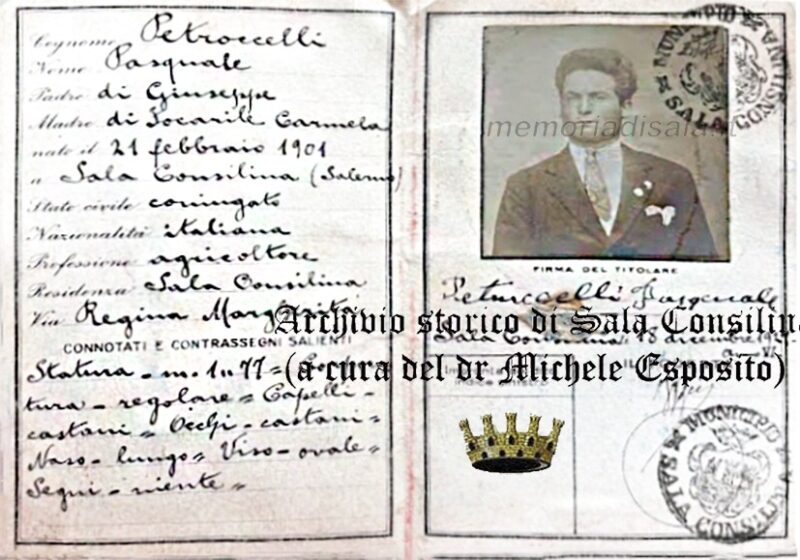 Cognome Petroccelli
Nome Pasquale
Padre di Giuseppe
Madre di Socarile Carmela
nato il 21 febbraio 1901
a Sala Consilina (Salerno)
Stato civile coniugato
Nazionalità italiana
Professione agricoltore
Residenza Sala Consilina
Via Regina Margherita
CONNOTATI E CONTRASSEGNI SALIENTI
Statura - m. 1.77 =
tura - regolare = Capelli -
castani = Occhi - castani =
Naso - lungo = Viso - ovale =
Segni - niente =
memoriadisala.it
MUNICIPIO
SALA CONSILINA
FIRMA DEL TITOLARE
Petruccelli Pasquale
Sala Consilina, 18 dicembre
Archivio storico di Sala Consilina
(a cura del dr Michele Esposito)
MUNICIPIO
SALA CONSILINA